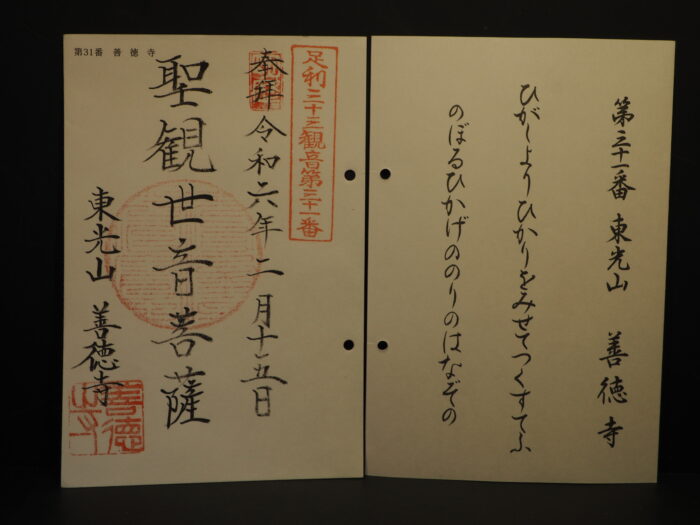 第31番 善徳寺
足利三十三観音第三十一番
奉拝 令和六年二月十五日
聖観世音菩薩
東光山 善徳寺
善徳寺
第三十一番 東光山 善徳寺
ひがしよりひかりをみせてつくすてふ
のぼるひかげののりのはなぞの